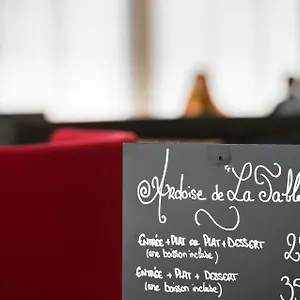 Ardoise de "La Table
ENTRÉE + PLAT OU PLAT + DESSERT
(une boisson incluse)
ENTRÉE + PLAT + DESSERT 35
(une boisson incluse)